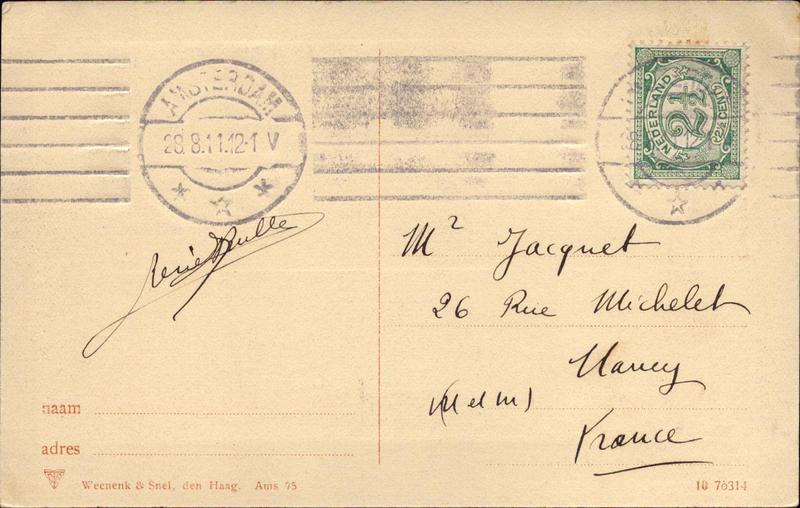 AMSTERDAM
28.8.11.12-1 V
NEDERLAND
2½
(2½ CENT)
Mr Jacquet
26 Rue Michelet
Nancy
(M et M)
France
naam
adres
Weenenk & Snel, den Haag. Ams 75
10 76314